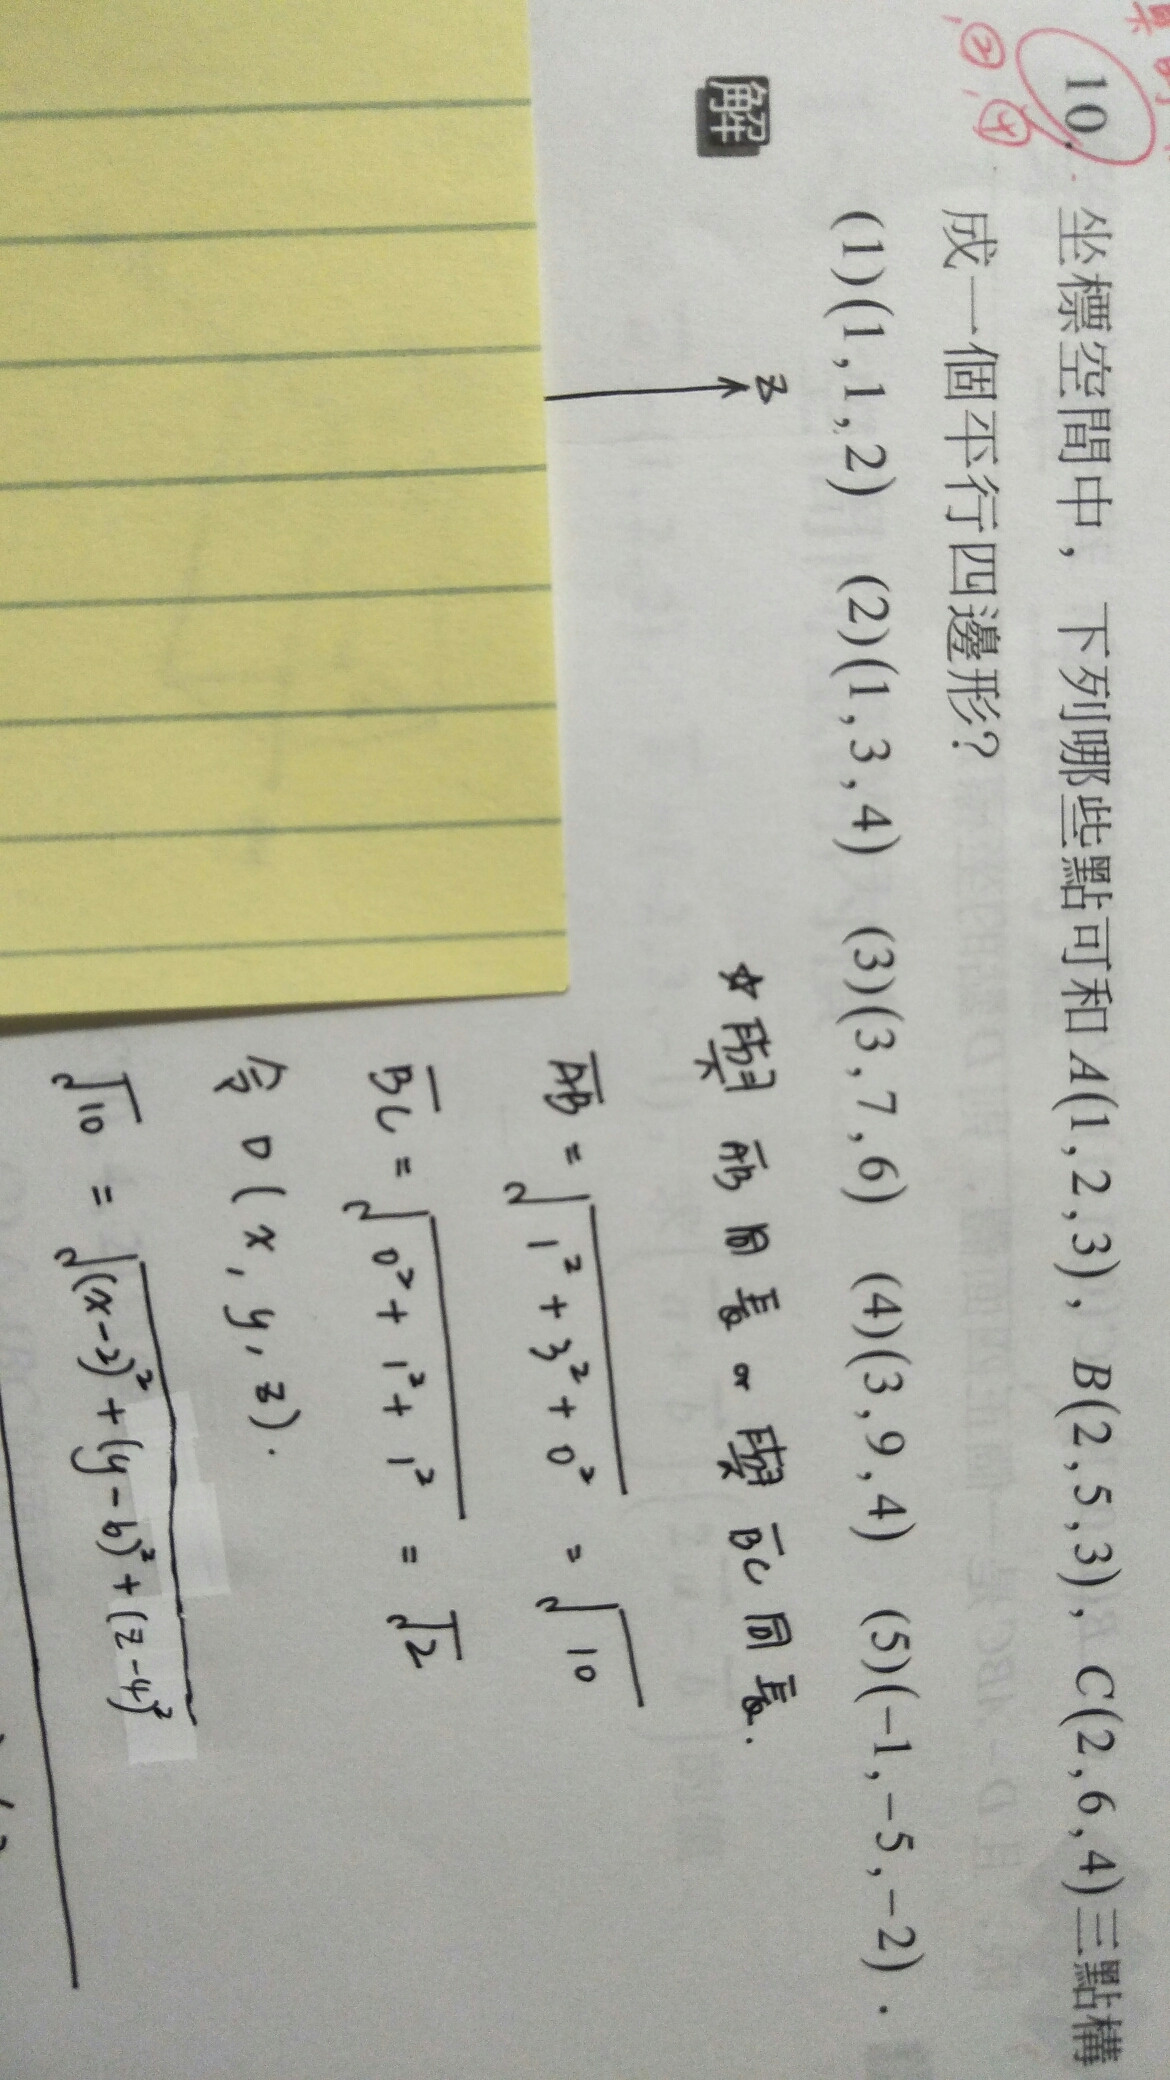 ②,④
10.
坐標空間中,下列哪些點可和 A(1,2,3)、B(2,5,3)、C(2,6,4)三點構
成一個平行四邊形?
(1)(1,1,2) (2)(1,3,4) (3)(3,7,6) (4)(3,9,4) (5)(-1,-5,-2).
解
z
☆ 與 AB 同長 or 與 BC 同長.
AB = √1²+3²+0² = √10
BC = √0²+1²+1² = √2
令 D(x,y,z).
√10 = √(x-2)²+(y-6)²+(z-4)²